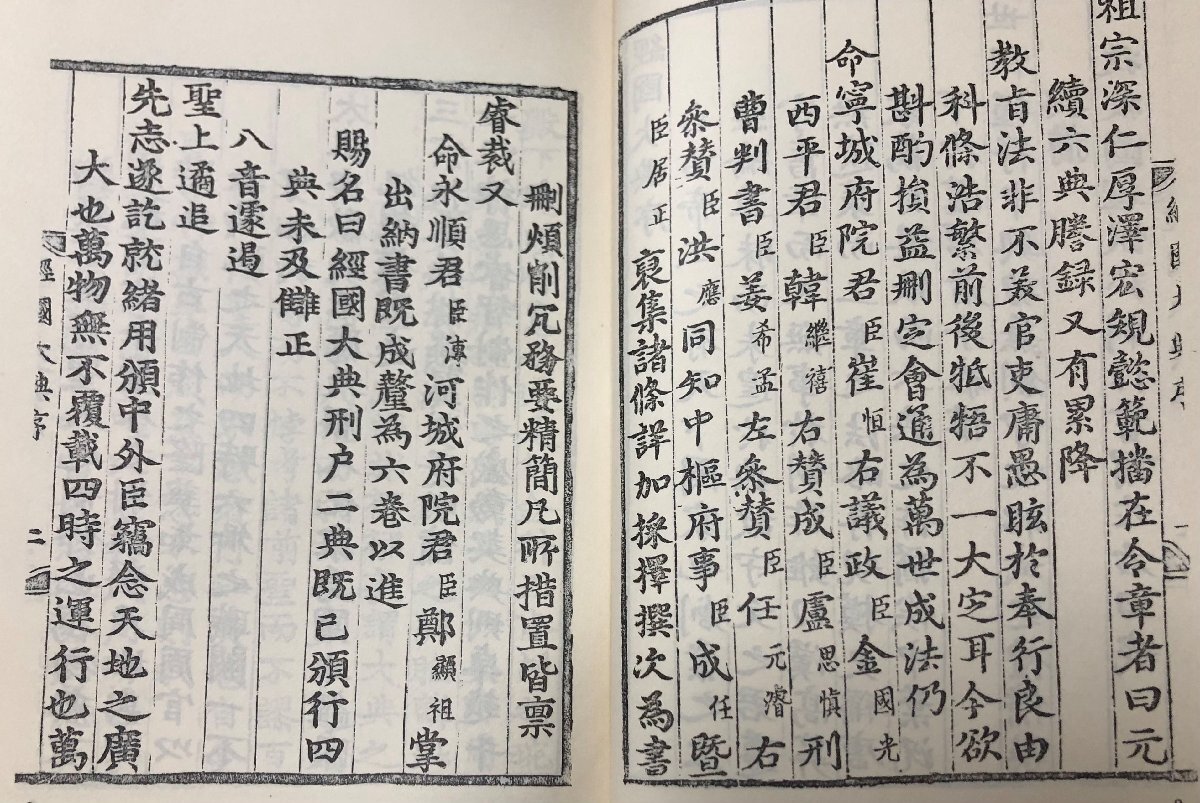 經國大典序
祖宗深仁厚澤宏規懿範播在令章者曰元
續六典謄録又有累降
教旨法非不美官吏庸愚眩於奉行良由
科條浩繁前後牴牾不一大定耳今欲
斟酌損益刪定會通為萬世成法仍
命寧城府院君臣崔恒右議政臣金國光
西平君臣韓繼禧右賛成臣盧思愼刑
曹判書臣姜希孟左叅賛臣任元濬右
叅賛臣洪應同知中樞府事臣成任曁
臣居正裒集諸條詳加採擇撰次為書
刪煩削冗務要精簡凡所措置皆禀
睿裁又
命永順君臣溥河城府院君臣鄭顯祖掌
出納書既成釐為六巻以進
賜名曰經國大典刑户二典既已頒行四
典未及讎正
八音遽遏
聖上遹追
先志遂訖就緒用頒中外臣竊念天地之廣
大也萬物無不覆載四時之運行也萬
經國大典序
二